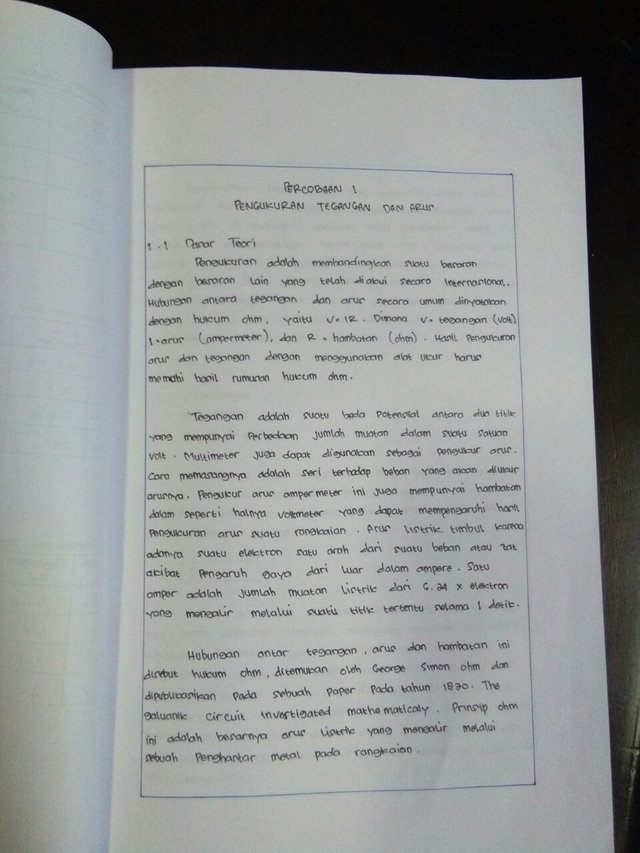 PERCOBAAN 1
PENGUKURAN TEGANGAN DAN ARUS
1.1 Dasar Teori
Pengukuran adalah membandingkan suatu besaran
dengan besaran lain yang telah diakui secara Internasional.
Hubungan antara tegangan dan arus secara umum dinyatakan
dengan hukum ohm, yaitu V=IR. Dimana V= tegangan (volt)
I=arus (ampermeter), dan R = hambatan (ohm). Hasil Pengukuran
arus dan tegangan dengan menggunakan alat ukur harus
memahi hasil rumusan hukum ohm.
Tegangan adalah suatu beda Potensial antara dua titik
yang mempunyai Perbedaan jumlah muatan dalam suatu satuan
volt. Multimeter juga dapat digunakan sebagai pengukur arus.
Cara memasangnya adalah seri terhadap beban yang akan diukur
arusnya. Pengukur arus ampermeter ini juga mempunyai hambatan
dalam seperti halnya voltmeter yang dapat mempengaruhi hasil
Pengukuran arus suatu rangkaian. Arus listrik timbul karena
adanya suatu elektron satu arah dari suatu beban atau zat
akibat Pengaruh gaya dari luar dalam ampere. Satu
amper adalah jumlah muatan listrik dari 6.24 x elektron
yang mengalir melalui suatu titik tertentu selama 1 detik.
Hubungan antar tegangan, arus dan hambatan ini
disebut hukum ohm, ditemukan oleh George Simon ohm dan
dipublikasikan Pada sebuah Paper Pada tahun 1820. The
galuanik Circuit Investigated mathematicaly. Prinsip ohm
ini adalah besarnya arus listrik yang mengalir melalui
sebuah Penghantar metal pada rangkaian.